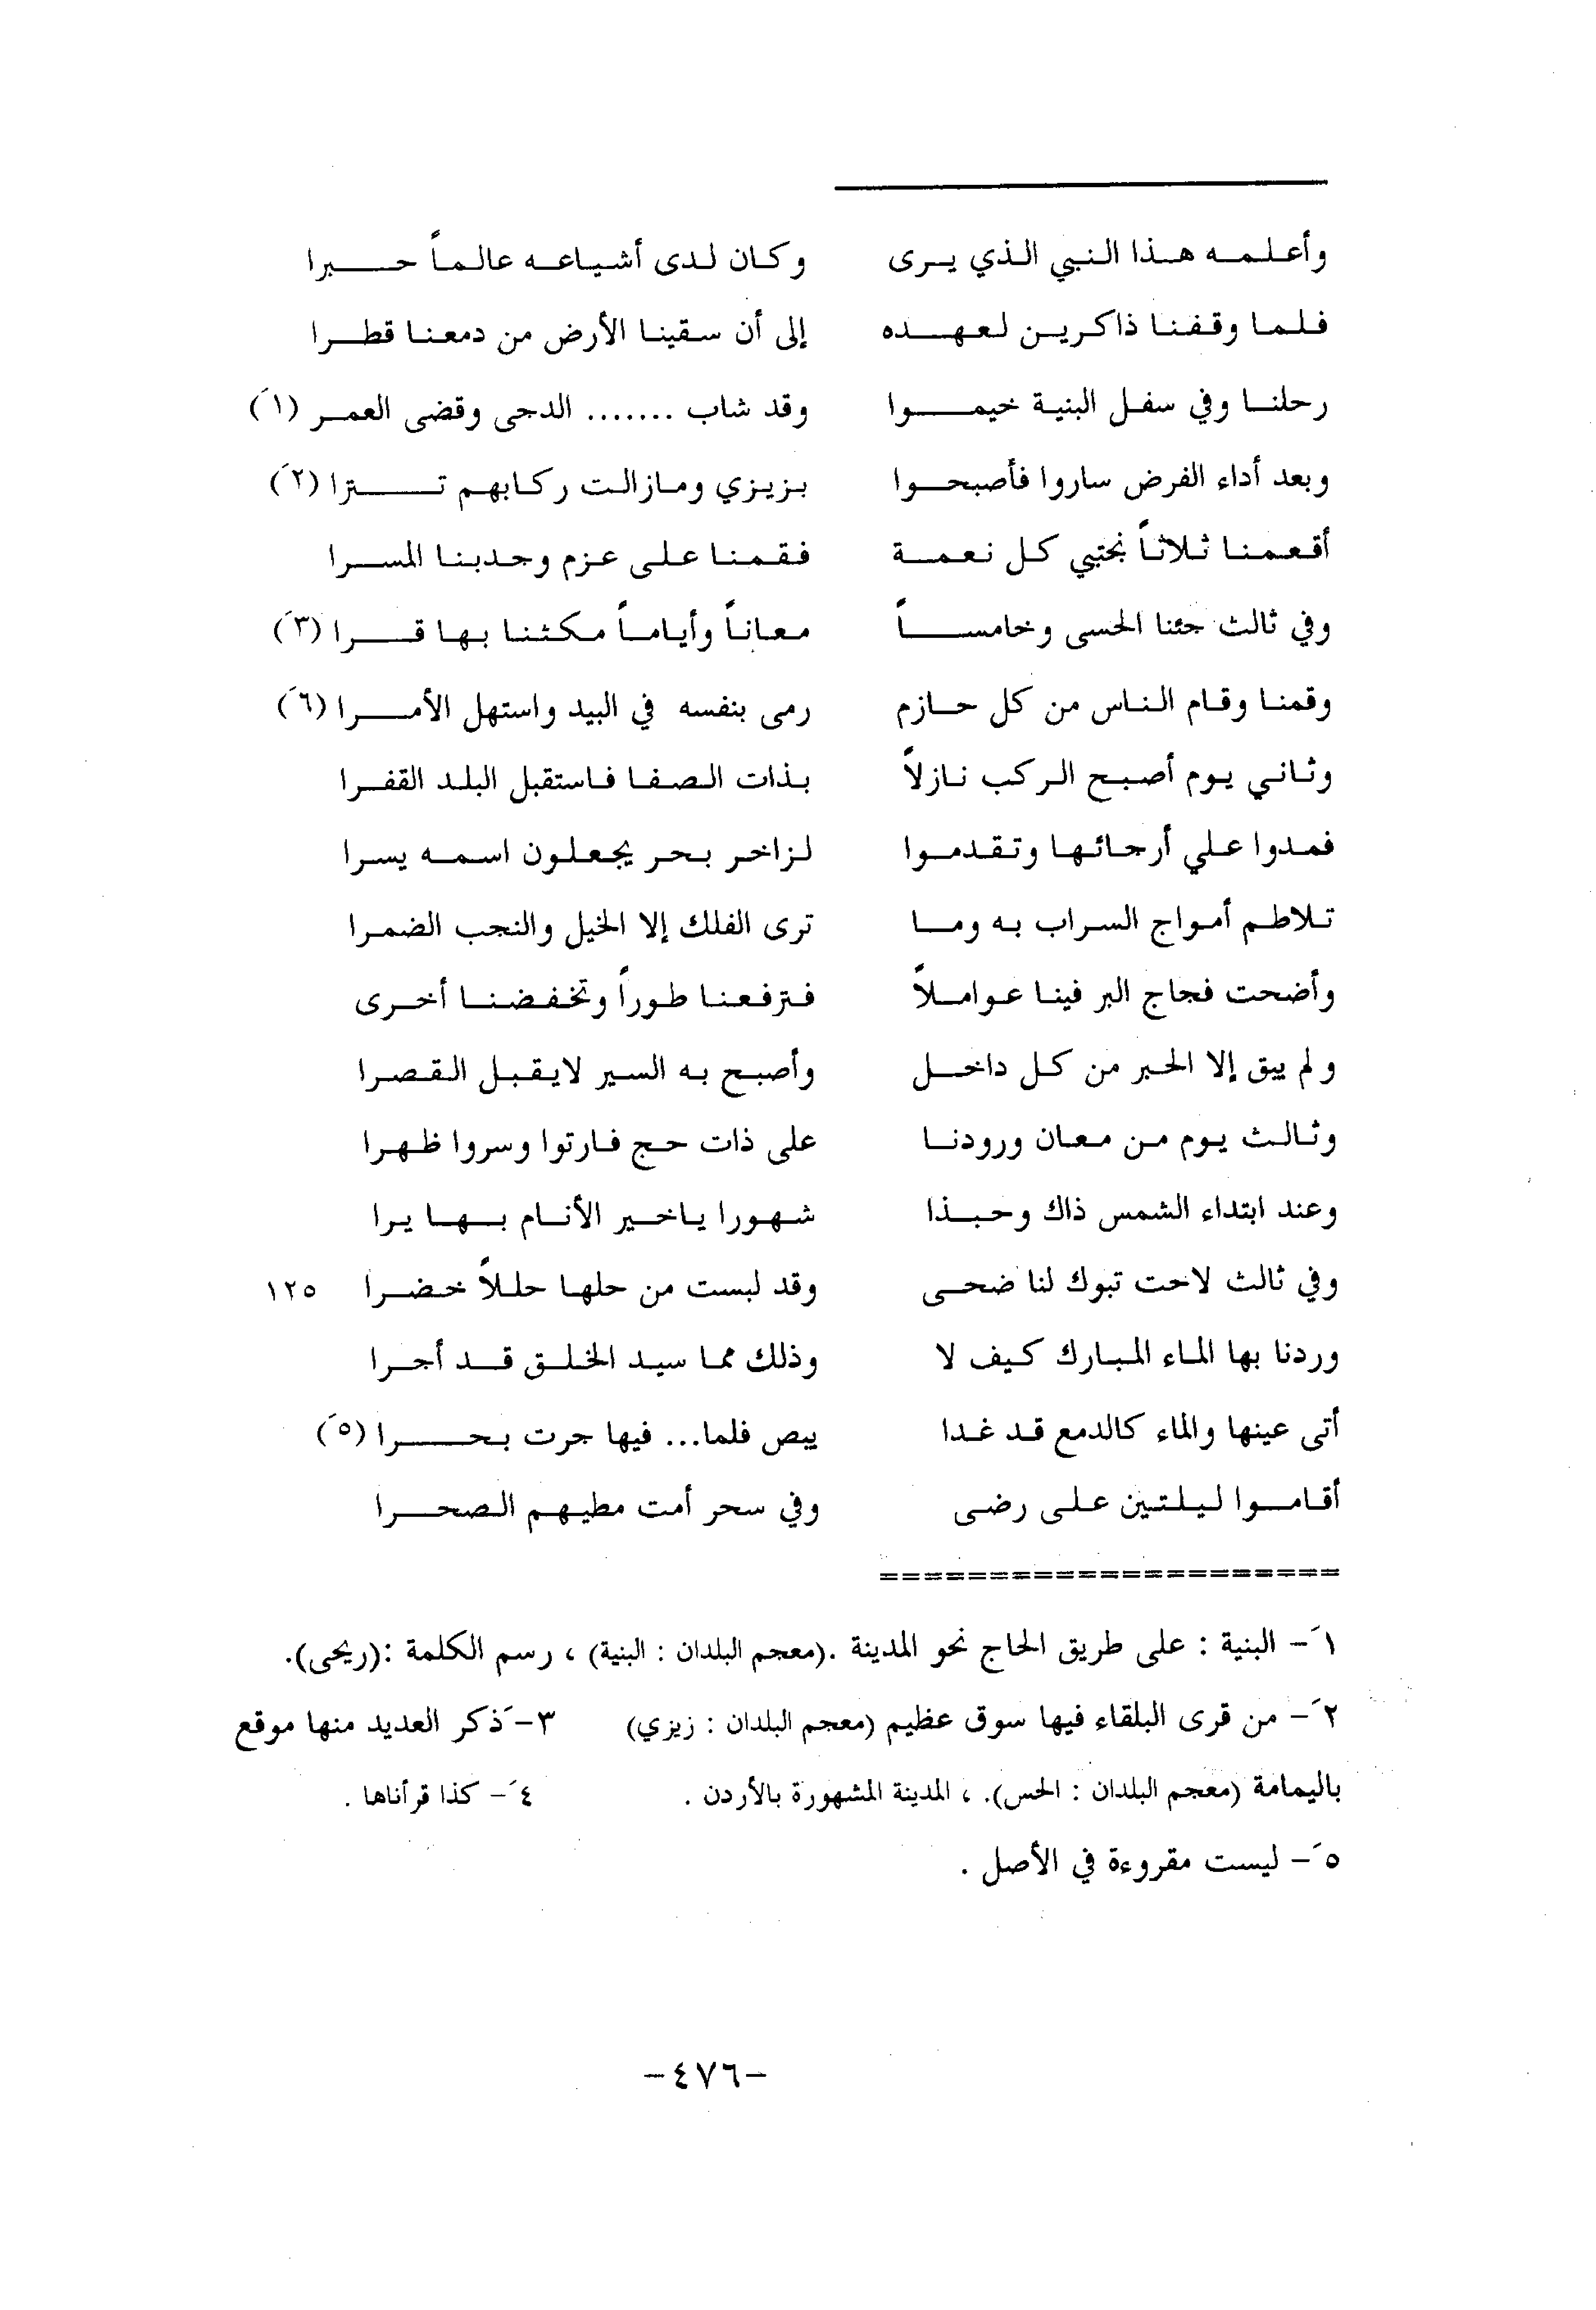 وأعلمه هذا النبي الذي يرى وكان لدى أشياعه عالماً حبرا
فلما وقفنا ذاكرين لعهده إلى أن سقينا الأرض من دمعنا قطرا
رحلنا وفي سفل البنية خيموا وقد شاب ....... الدجى وقضى العمر (١َ)
وبعد أداء الفرض ساروا فأصبحوا بزيزي ومازالت ركابهم تترا (٢َ)
أقعمنا ثلاثاً نجتبي كل نعمة فقمنا على عزم وجدبنا المسرا
وفي ثالث جئنا الحسى وخامساً معاناً وأياماً مكثنا بها قرا (٣َ)
وقمنا وقام الناس من كل حازم رمى بنفسه في البيد واستهل الأمرا (٦َ)
وثاني يوم أصبح الركب نازلاً بذات الصفا فاستقبل البلد القفرا
فمدوا علي أرجائها وتقدموا لزاخر بحر يجعلون اسمه يسرا
تلاطم أمواج السراب به وما ترى الفلك إلا الخيل والنجب الضمرا
وأضحت فجاج البر فينا عواملاً فترفعنا طوراً وتخفضنا أخرى
ولم يبق إلا الحبر من كل داخل وأصبح به السير لايقبل القصرا
وثالث يوم من معان ورودنا على ذات حج فارتوا وسروا ظهرا
وعند ابتداء الشمس ذاك وحبذا شهورا ياخير الأنام بها يرا
وفي ثالث لاحت تبوك لنا ضحى وقد لبست من حلها حللاً خضرا ١٢٥
وردنا بها الماء المبارك كيف لا وذلك مما سيد الخلق قد أجرا
أتى عينها والماء كالدمع قد غدا يبص فلما... فيها جرت بحرا (٥َ)
أقاموا ليلتين على رضى وفي سحر أمت مطيهم الصحرا
=====================
١َ- البنية : على طريق الحاج نحو المدينة .(معجم البلدان : البنية) ، رسم الكلمة :(ريحى).
٢َ- من قرى البلقاء فيها سوق عظيم (معجم البلدان : زيزي) ٣-َ ذكر العديد منها موقع
باليمامة (معجم البلدان : الحس). ، المدينة المشهورة بالأردن . ٤َ- كذا قرأناها .
٥َ- ليست مقروءة في الأصل .
-٤٧٦-